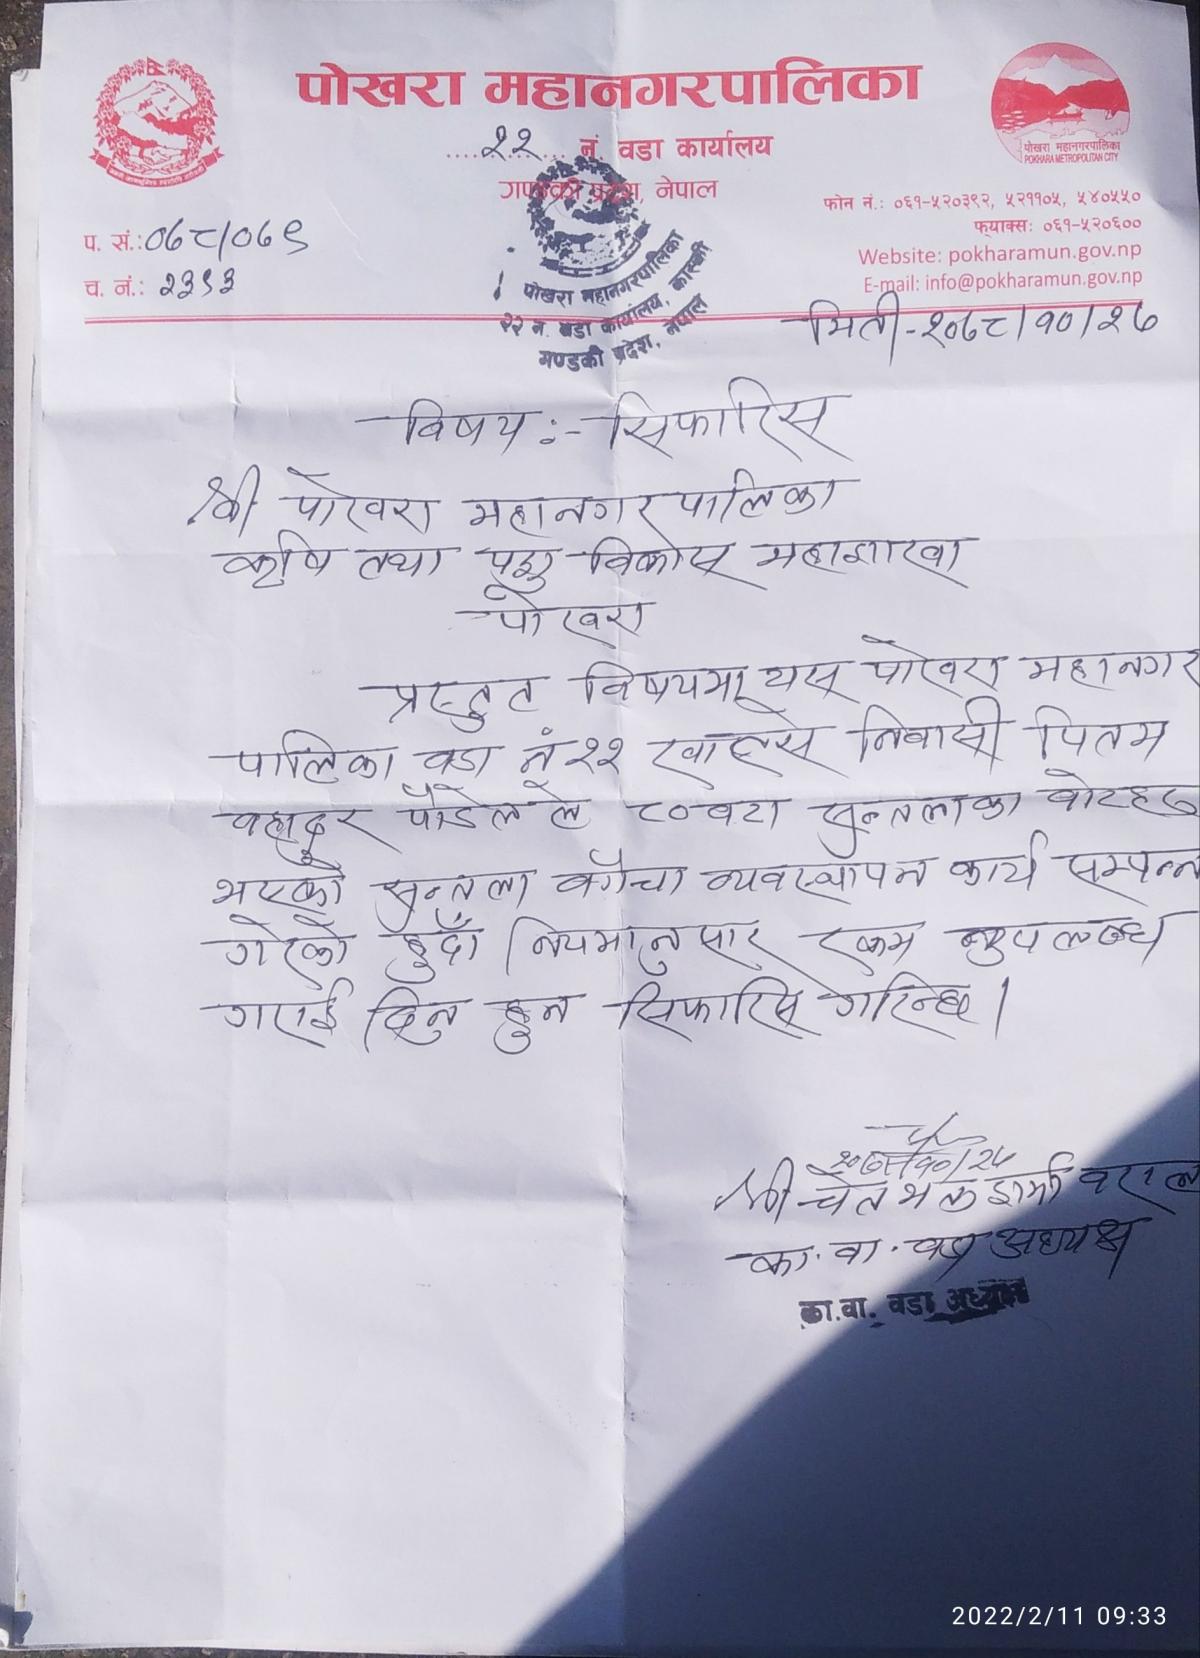 पोखरा महानगरपालिका
....२२... नं. वडा कार्यालय
गण्डकी प्रदेश, नेपाल
पोखरा महानगरपालिका
POKHARA METROPOLITAN CITY
फोन नं.: ०६१-५२०३९२, ५२११०५, ५४०५५०
फ्याक्स: ०६१-५२०६००
Website: pokharamun.gov.np
E-mail: info@pokharamun.gov.np
प. सं.: ०७८/०७९
च. नं.: २३९३
पोखरा महानगरपालिका
२२ नं. वडा कार्यालय, कास्की
गण्डकी प्रदेश, नेपाल
मिती-२०७८/१०/२७
विषय :- सिफारिस
श्री पोखरा महानगरपालिका
कृषि तथा पशु विकास महाशाखा
पोखरा
प्रस्तुत विषयमा यस पोखरा महानगर
पालिका वडा नं २२ निवासी पितम
वहादुर पौडेलले ८० वटा सुन्तलाका वोटहरु
भएको सुन्तला वगैचा व्यवस्थापन कार्य सम्पन्न
गरेको हुदाँ नियमानुसार रकम उपलब्ध
गराई दिनु हुन सिफारिस गरिन्छ।
२०७८/१०/२७
श्री शर्मा वराल
का. वा. वडा अध्यक्ष
का.वा. वडा अध्यक्ष
2022/2/11 09:33